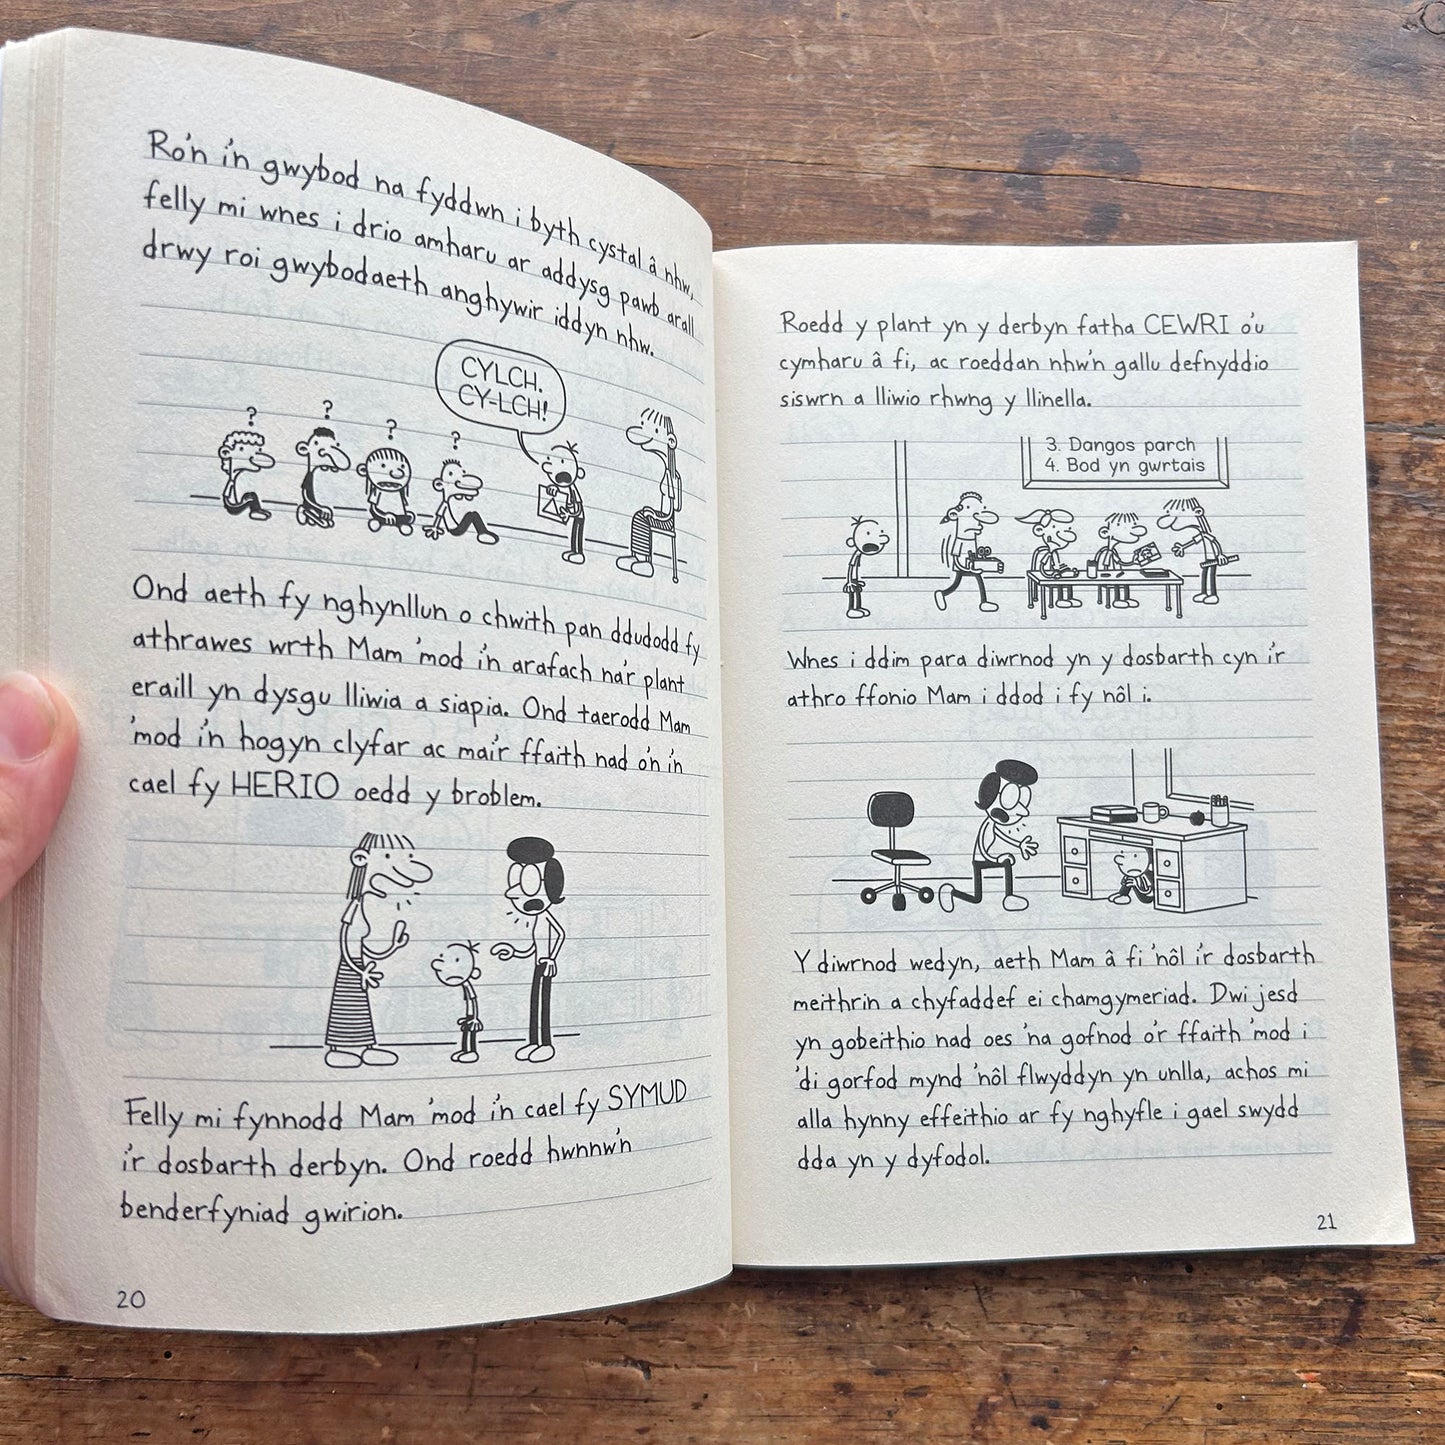 Ro'n i'n gwybod na fyddwn i byth cystal â nhw,
felly mi wnes i drio amharu ar addysg pawb arall
drwy roi gwybodaeth anghywir iddyn nhw.
?
?
?
?
CYLCH.
CY-LCH!
Ond aeth fy nghynllun o chwith pan ddudodd fy
athrawes wrth Mam 'mod i'n arafach na'r plant
eraill yn dysgu lliwia a siapia. Ond taerodd Mam
'mod i'n hogyn clyfar ac mai'r ffaith nad o'n i'n
cael fy HERIO oedd y broblem.
Felly mi fynnodd Mam 'mod i'n cael fy SYMUD
i'r dosbarth derbyn. Ond roedd hwnnw'n
benderfyniad gwirion.
20
Roedd y plant yn y derbyn fatha CEWRI o'u
cymharu â fi, ac roeddan nhw'n gallu defnyddio
siswrn a lliwio rhwng y llinella.
3. Dangos parch
4. Bod yn gwrtais
Wnes i ddim para diwrnod yn y dosbarth cyn i'r
athro ffonio Mam i ddod i fy nôl i.
Y diwrnod wedyn, aeth Mam â fi 'nôl i'r dosbarth
meithrin a chyfaddef ei chamgymeriad. Dwi jesd
yn gobeithio nad oes 'na gofnod o'r ffaith 'mod i
'di gorfod mynd 'nôl flwyddyn yn unlla, achos mi
alla hynny effeithio ar fy nghyfle i gael swydd
dda yn y dyfodol.
21